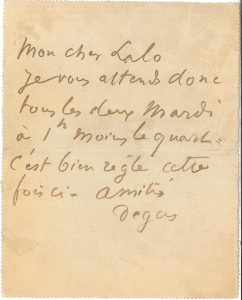 Mon cher Lalo
je vous attends donc
tous les deux Mardi
à 1h moins le quart.
C'est bien réglé cette
fois ci. amitiés
Degas